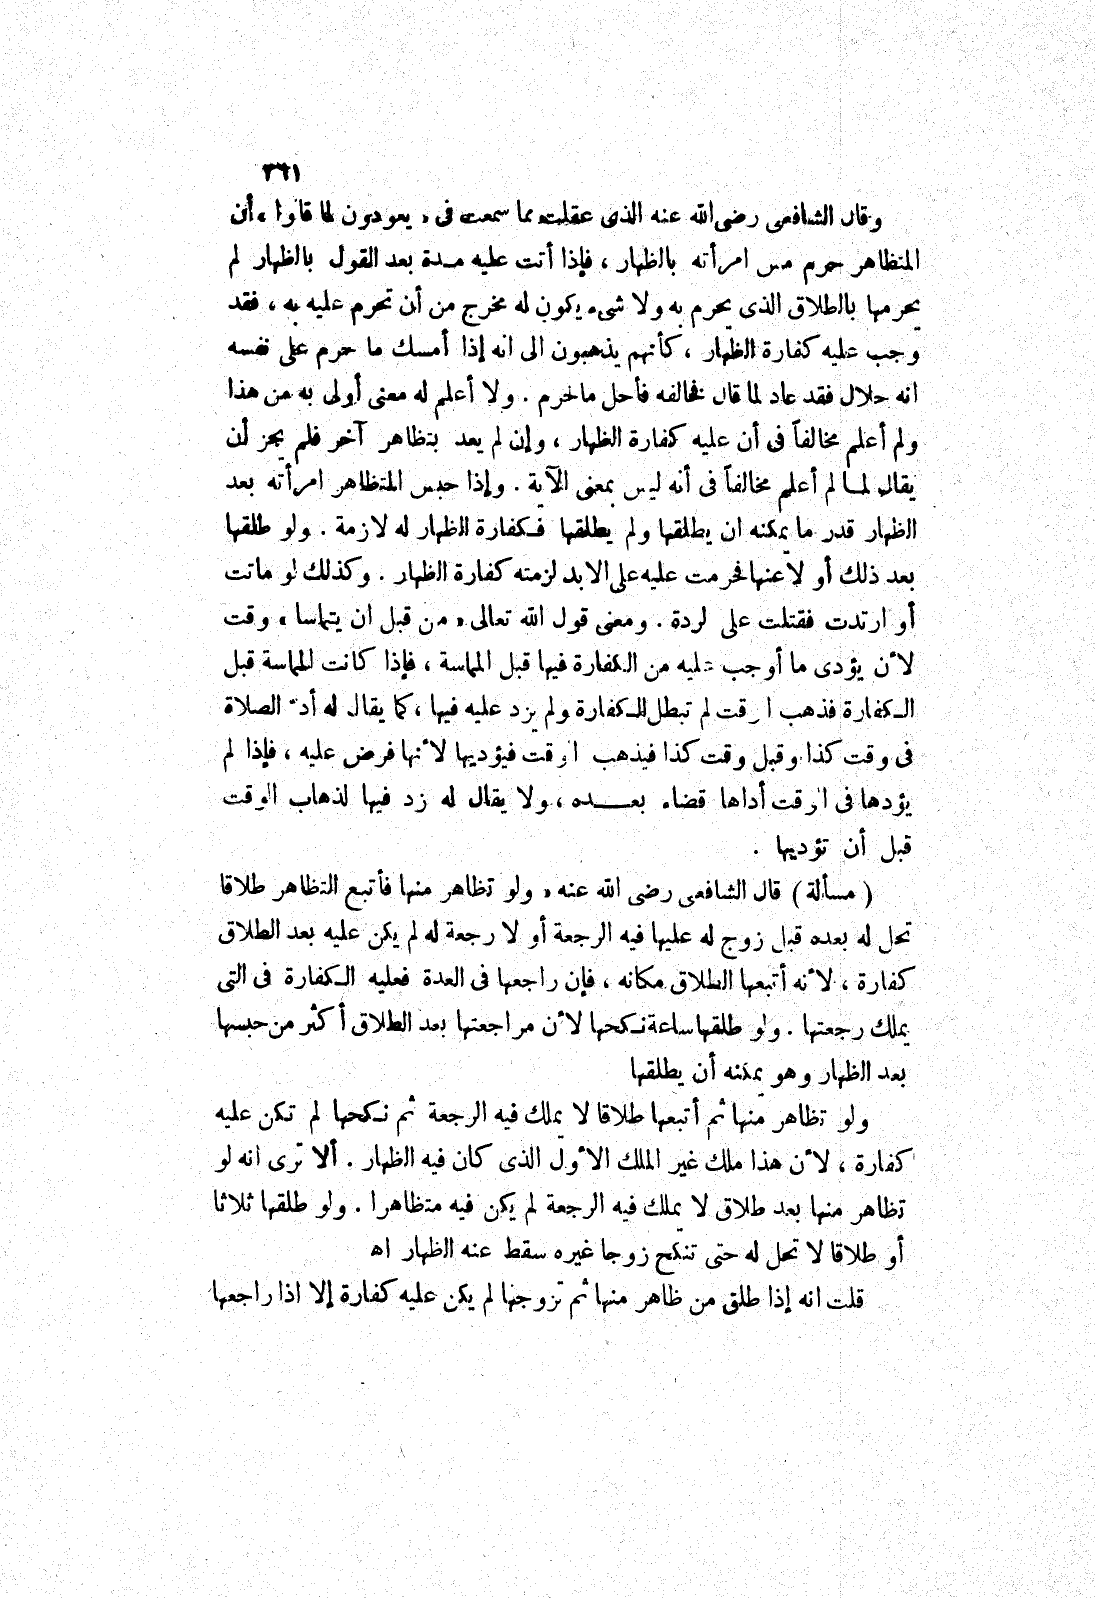 ٣٦١
وقال الشافعى رضى الله عنه الذى عقلت مما سمعت فى « يعودون لما قالوا » أن
المتظاهر حرم مس امرأته بالظهار ، فإذا أتت عليه مدة بعد القول بالظهار لم
يحرمها بالطلاق الذى يحرم به ولا شىء يكون له مخرج من أن تحرم عليه به ، فقد
وجب عليه كفارة الظهار ، كأنهم يذهبون الى انه إذا أمسك ما حرم على نفسه
انه حلال فقد عاد لما قال فخالفه فأحل ما حرم . ولا أعلم له معنى أولى به من هذا
ولم أعلم مخالفاً فى أن عليه كفارة الظهار ، وإن لم يعد بتظاهر آخر فلم يجز أن
يقال لما لم أعلم مخالفاً فى أنه ليس بمعنى الآية . وإذا حبس المتظاهر امرأته بعد
الظهار قدر ما يمكنه ان يطلقها ولم يطلقها فكفارة الظهار له لازمة . ولو طلقها
بعد ذلك أو لاعنها فحرمت عليه على الابد لزمته كفارة الظهار . وكذلك لو ماتت
أو ارتدت فقتلت على الردة . ومعنى قول الله تعالى « من قبل ان يتماسا » وقت
لأن يؤدى ما أوجب عليه من الكفارة فيها قبل المماسة ، فإذا كانت المماسة قبل
الكفارة فذهب الوقت لم تبطل الكفارة ولم يزد عليه فيها ، كما يقال له أد الصلاة
فى وقت كذا وقبل وقت كذا فيذهب الوقت فيؤديها لأنها فرض عليه ، فإذا لم
يؤدها فى الوقت أداها قضاء بعده ، ولا يقال له زد فيها لذهاب الوقت
قبل أن تؤديها .
( مسألة ) قال الشافعى رضى الله عنه « ولو تظاهر منها فأتبع التظاهر طلاقا
تحل له بعده قبل زوج له عليها فيه الرجعة أو لا رجعة له لم يكن عليه بعد الطلاق
كفارة ، لأنه أتبعها الطلاق مكانه ، فإن راجعها فى العدة فعليه الكفارة فى التى
يملك رجعتها . ولو طلقها ساعة نكحها لأن مراجعتها بعد الطلاق أكثر من حبسها
بعد الظهار وهو يمكنه أن يطلقها
ولو تظاهر منها ثم أتبعها طلاقا لا يملك فيه الرجعة ثم نكحها لم تكن عليه
كفارة ، لأن هذا ملك غير الملك الأول الذى كان فيه الظهار . ألا ترى انه لو
تظاهر منها بعد طلاق لا يملك فيه الرجعة لم يكن فيه متظاهرا . ولو طلقها ثلاثا
أو طلاقا لا تحل له حتى تنكح زوجا غيره سقط عنه الظهار اه
قلت انه إذا طلق من ظاهر منها ثم تزوجها لم يكن عليه كفارة إلا اذا راجعها